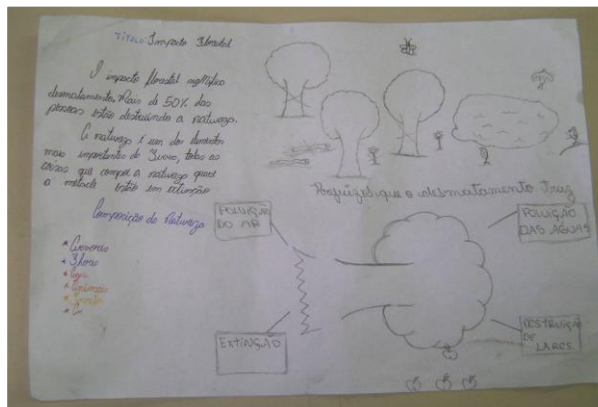 Título: Impacto Florestal
O impacto florestal significa
desmatamento, Mais de 50% das
pessoas estão destruindo a natureza.
A natureza é um dos elementos
mais importantes do , todas as
coisas que compõe a natureza quase
a metade estão em extinção
Composição da Natureza
* Árvores
* Flores
*
* Animais
*
*
Prejuízos que o desmatamento Traz
POLUIÇÃO
DO AR
POLUIÇÃO
DAS ÁGUAS
EXTINÇÃO
DESTRUIÇÃO
DE
LARES.